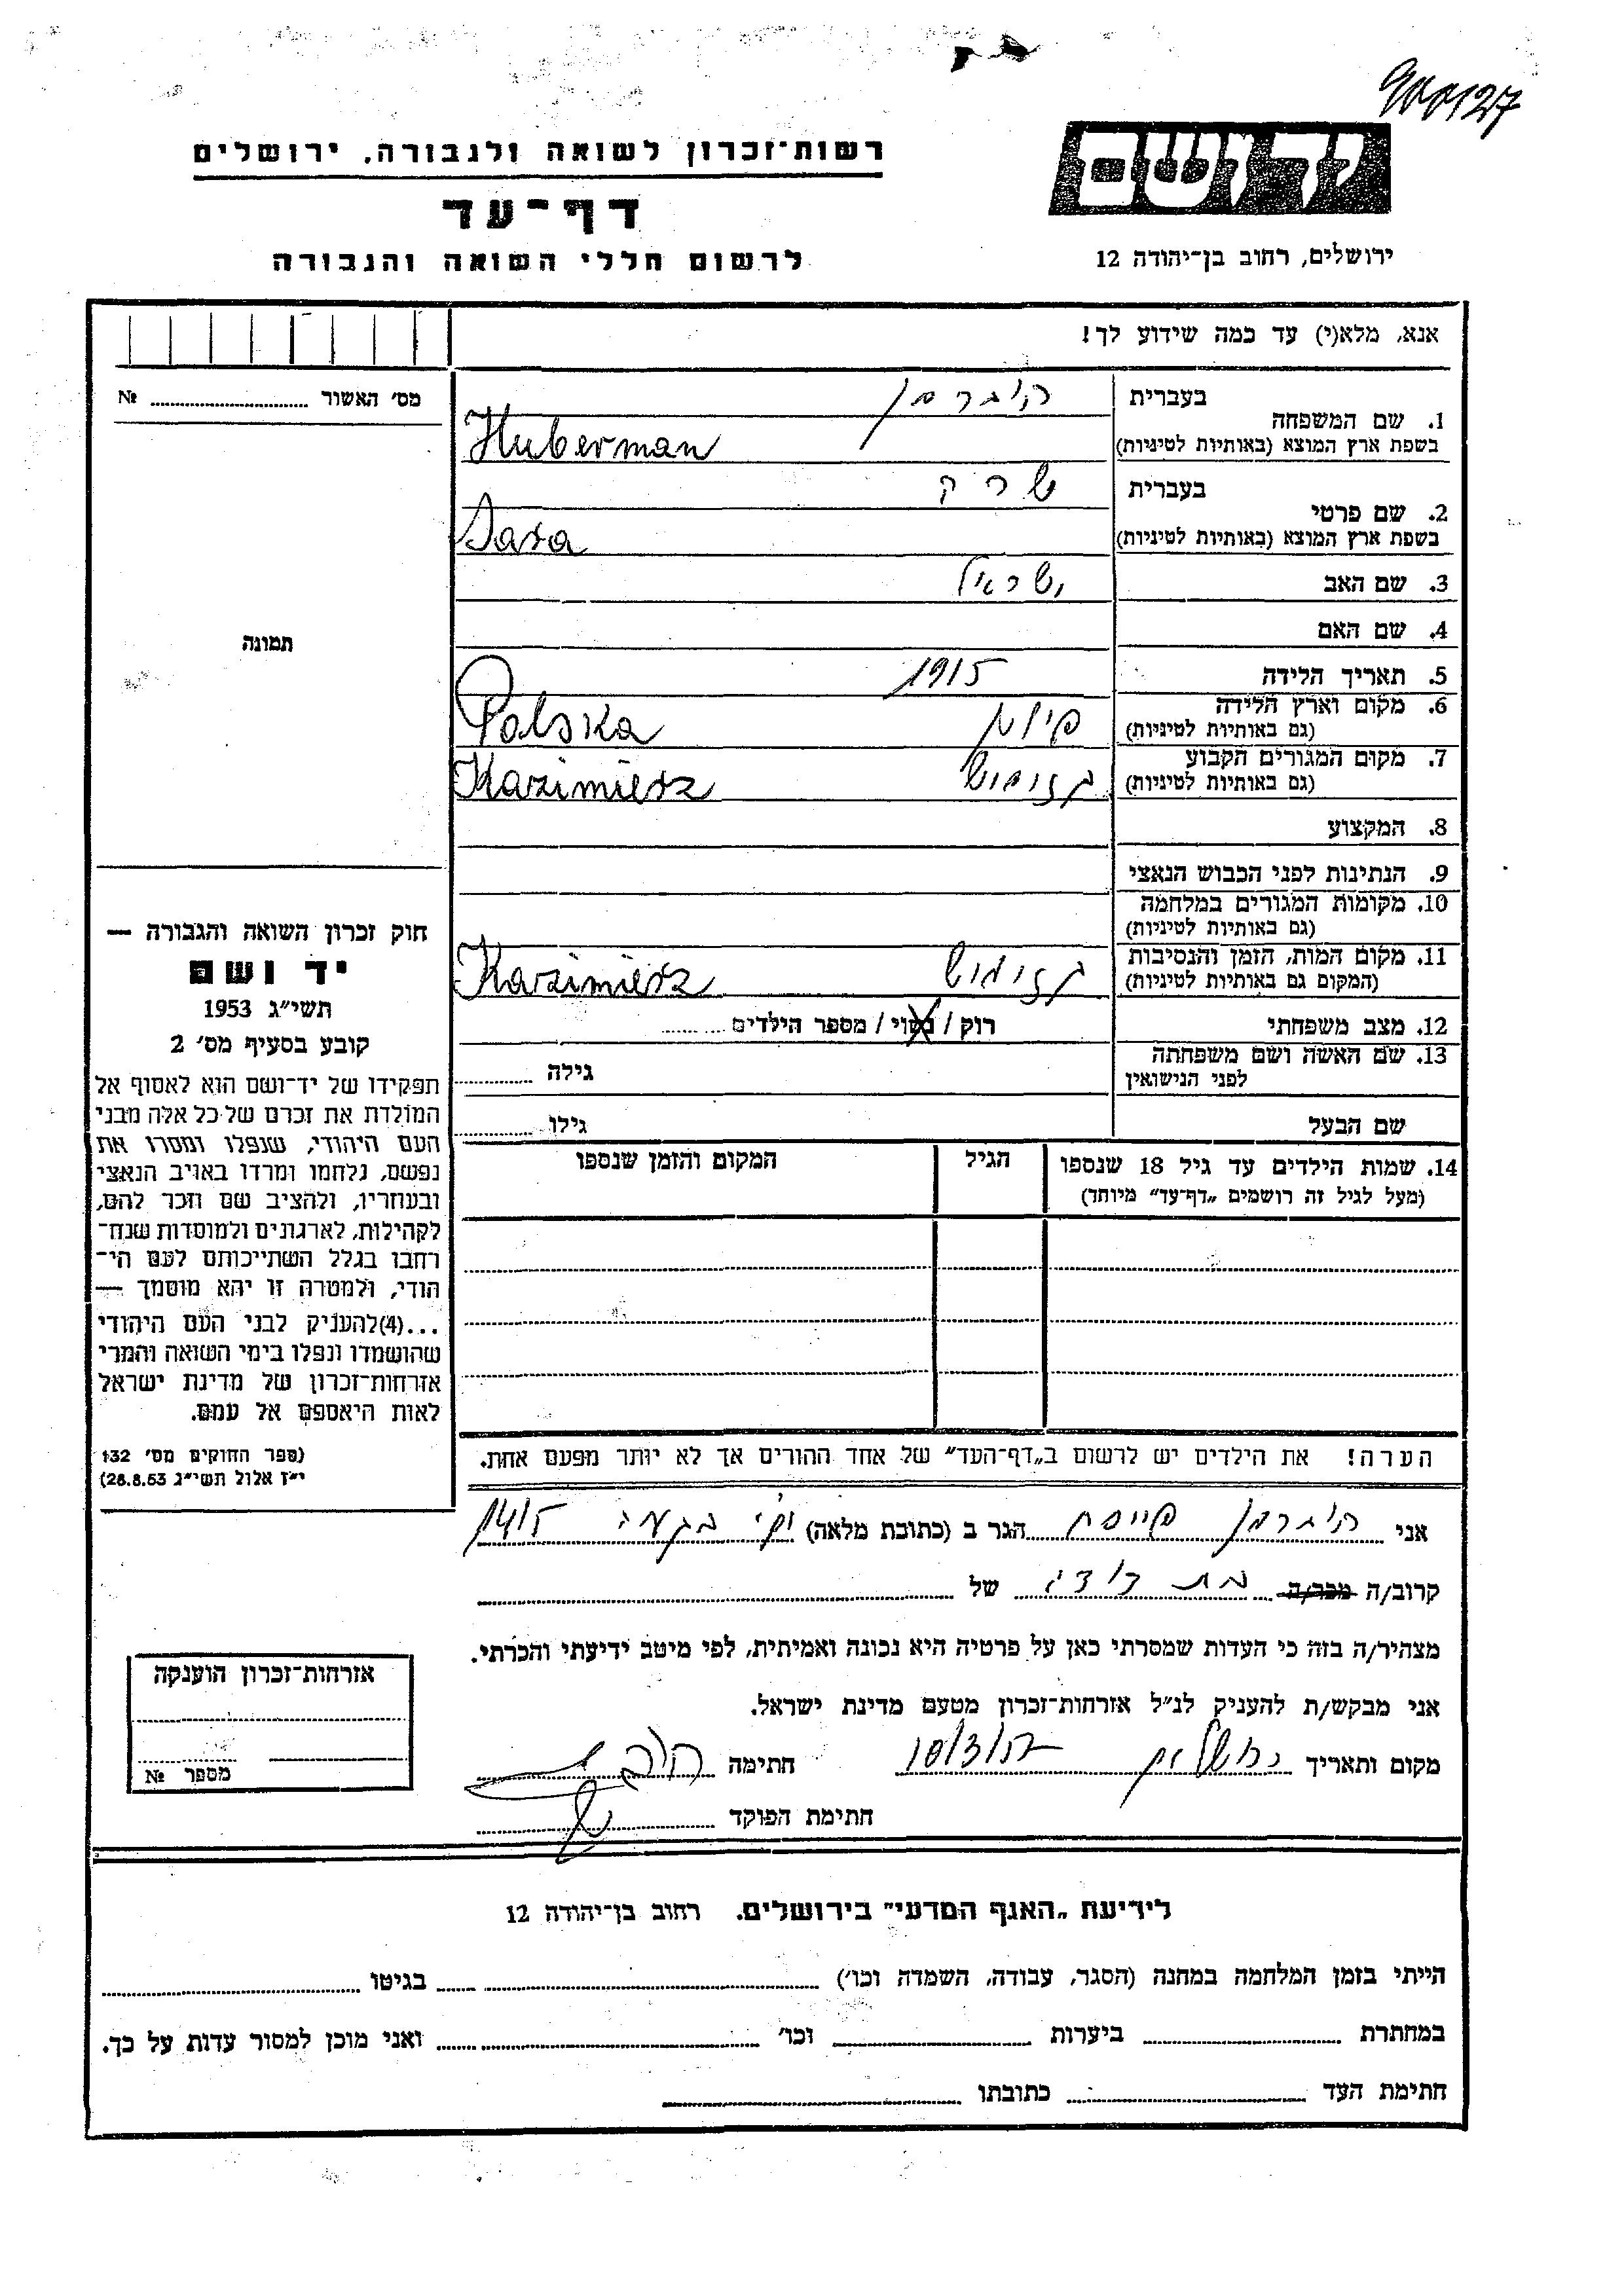 רשות־זכרון לשואה ולגבורה, ירושלים
דף־עד
לרשום חללי השואה והגבורה
יד ושם
ירושלים, רחוב בן־יהודה 12
אנא, מלא(י) עד כמה שידוע לך!
מס׳ האשור № 
1. שם המשפחה
בעברית הוברמן
בשפת ארץ המוצא (באותיות לטיניות) Huberman
2. שם פרטי
בעברית שרה
בשפת ארץ המוצא (באותיות לטיניות) Sara
3. שם האב ישראל
4. שם האם
5. תאריך הלידה 1915
6. מקום וארץ הלידה
(גם באותיות לטיניות) פולין Polska
7. מקום המגורים הקבוע
(גם באותיות לטיניות) Kazimierz
8. המקצוע
9. הנתינות לפני הכבוש הנאצי
10. מקומות המגורים במלחמה
(גם באותיות לטיניות)
11. מקום המות, הזמן והנסיבות
(המקום גם באותיות לטיניות) Kazimierz
12. מצב משפחתי רוק / נשוי / מספר הילדים
13. שם האשה ושם משפחתה
לפני הנישואין גילה
שם הבעל גילו
14. שמות הילדים עד גיל 18 שנספו הגיל המקום והזמן שנספו
(מעל לגיל זה רושמים „דף־עד״ מיוחד)
הערה! את הילדים יש לרשום ב„דף־העד״ של אחד ההורים אך לא יותר מפעם אחת.
תמונה
חוק זכרון השואה והגבורה —
יד ושם
תשי״ג 1953
קובע בסעיף מס׳ 2
תפקידו של יד־ושם הוא לאסוף אל
המולדת את זכרם של כל אלה מבני
העם היהודי, שנפלו ומסרו את
נפשם, נלחמו ומרדו באויב הנאצי
ובעוזריו, ולהציב שם וזכר להם,
לקהילות, לארגונים ולמוסדות שנח־
רבו בגלל השתייכותם לעם הי־
הודי, ולמטרה זו יהא מוסמך —
...(4)להעניק לבני העם היהודי
שהושמדו ונפלו בימי השואה והמרי
אזרחות־זכרון של מדינת ישראל
לאות היאספם אל עמם.
(ספר החוקים מס׳ 132
י״ז אלול תשי״ג 28.8.53)
אני הוברמן הגר ב (כתובת מלאה)
קרוב/ה מכר/ה בת דודה של
מצהיר/ה בזה כי העדות שמסרתי כאן על פרטיה היא נכונה ואמיתית, לפי מיטב ידיעתי והכרתי.
אני מבקש/ת להעניק לנ״ל אזרחות־זכרון מטעם מדינת ישראל.
מקום ותאריך ירושלים חתימה
חתימת הפוקד
אזרחות־זכרון הוענקה
מספר №
לידיעת „האגף המדעי״ בירושלים. רחוב בן־יהודה 12
הייתי בזמן המלחמה במחנה (הסגר, עבודה, השמדה וכו׳) בגיטו
במחתרת ביערות וכו׳ ואני מוכן למסור עדות על כך.
חתימת העד כתובתו